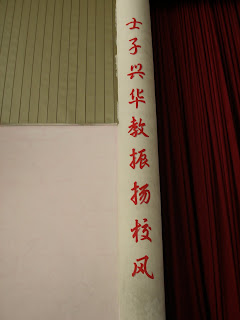 士子兴华教振扬校风